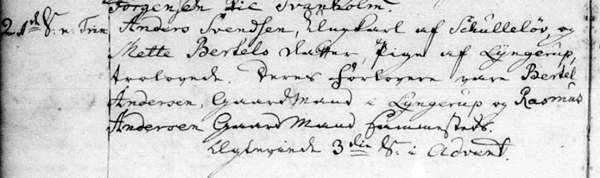 Jørgensen til Svanholm.
21de S. e. Trin Anders Svendsen, Ungkarl af Skulleløv, og
Mette Bertels Datter Pige af Lyngerup,
trolovede. Deres Forlovere vare Bertel
Andersen, Gaard Mand i Lyngerup og Rasmus
Andersen Gaard Mand
Ægteviede 3die S. i Advent.